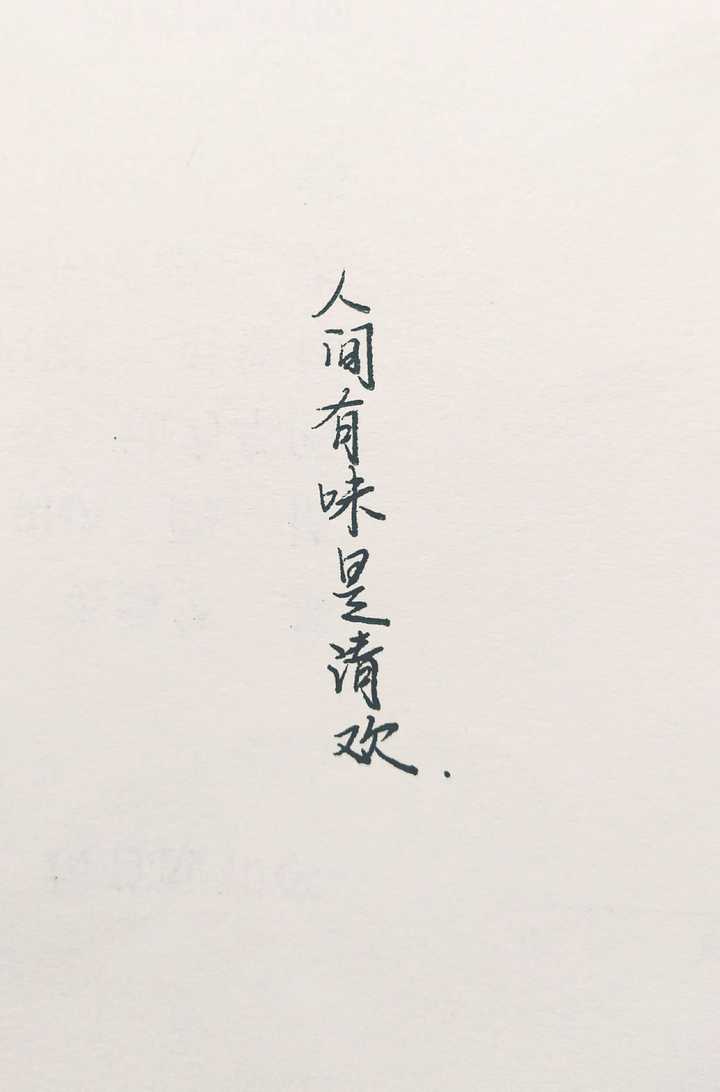 人间有味是清欢.